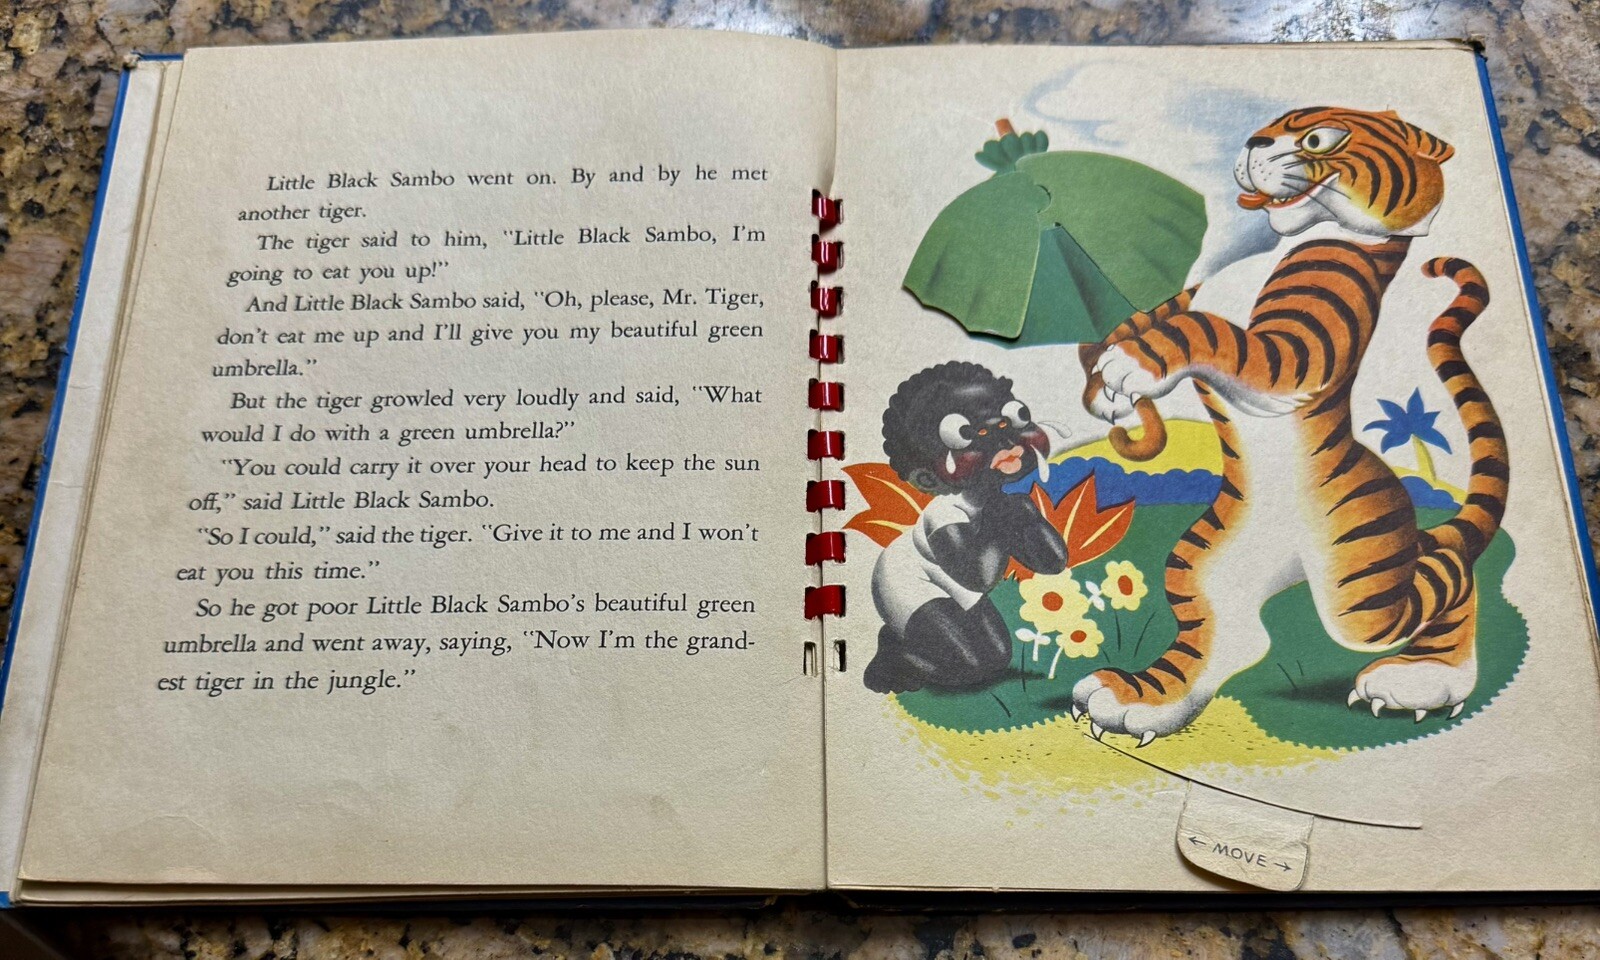 Little Black Sambo went on. By and by he met
another tiger.
The tiger said to him, "Little Black Sambo, I'm
going to eat you up!"
And Little Black Sambo said, "Oh, please, Mr. Tiger,
don't eat me up and I'll give you my beautiful green
umbrella."
But the tiger growled very loudly and said, "What
would I do with a green umbrella?"
"You could carry it over your head to keep the sun
off," said Little Black Sambo.
"So I could," said the tiger. "Give it to me and I won't
eat you this time."
So he got poor Little Black Sambo's beautiful green
umbrella and went away, saying, "Now I'm the grand-
est tiger in the jungle."
← MOVE →